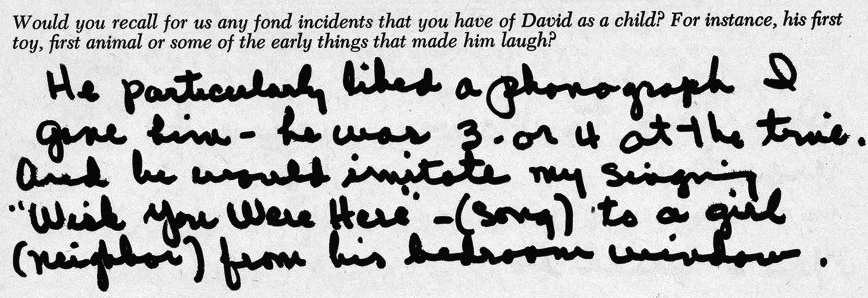 Would you recall for us any fond incidents that you have of David as a child? For instance, his first
toy, first animal or some of the early things that made him laugh?
He particularly liked a phonograph I
gave him - he was 3 - or 4 at the time.
And he would imitate my singing
"Wish You Were Here" - (song) to a girl
(neighbor) from his bedroom window.